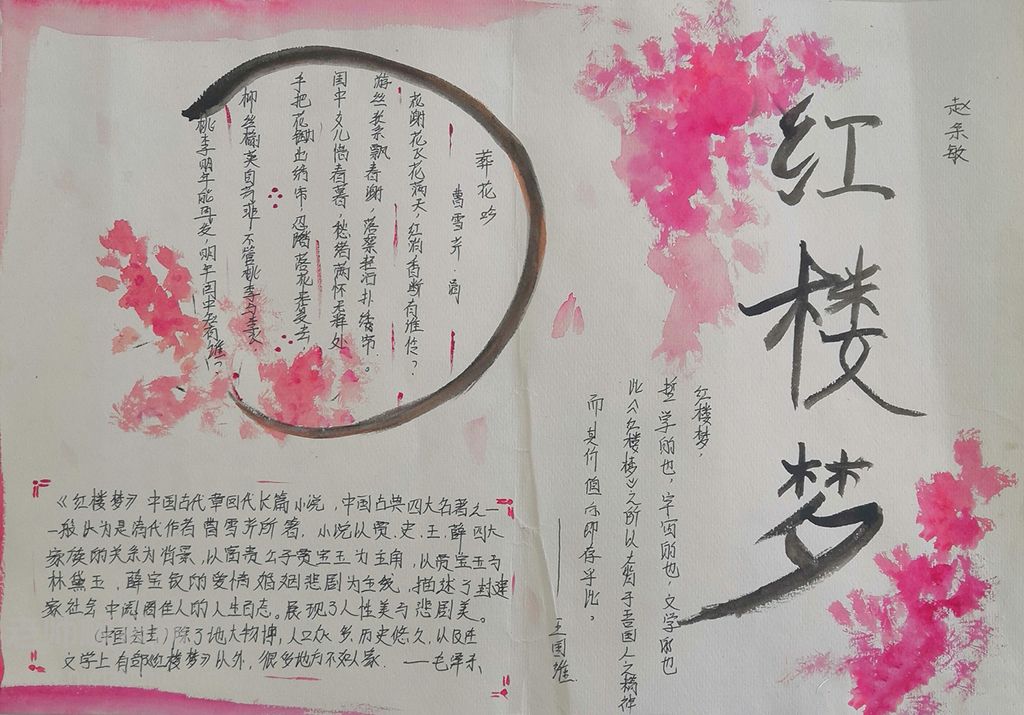 赵余敏
红楼梦
红楼梦,
哲学的也,宇宙的也,文学的也
此《红楼梦》之所以大背于吾国人之精神
而其价值亦即存乎此。
——王国维
葬花吟
曹雪芹·
花谢花飞花满天,红消香断有谁怜?
游丝软系飘春榭,落絮轻沾扑绣帘。
闺中女儿惜春暮,愁绪满怀无释处
手把花锄出绣帘,忍踏落花来复去
柳丝榆荚自芳菲,不管桃李与
桃李明年能再发,明年闺中知有谁?
《红楼梦》中国古代章回代长篇小说,中国古典四大名著之一
一般认为是清代作者曹雪芹所著。小说以贾、史、王、薛四大
家族的关系为背景,以富贵公子贾宝玉为主角,以贾宝玉与
林黛玉,薛宝钗的爱情婚姻悲剧为主线,描述了封建
家社会中闺阁佳人的人生百态。展现了人性美与悲剧美。
(中国过去)除了地大物博,人口众多,历史悠久,以及在
文学上有部《红楼梦》以外,很多地方不如人家。——毛泽东